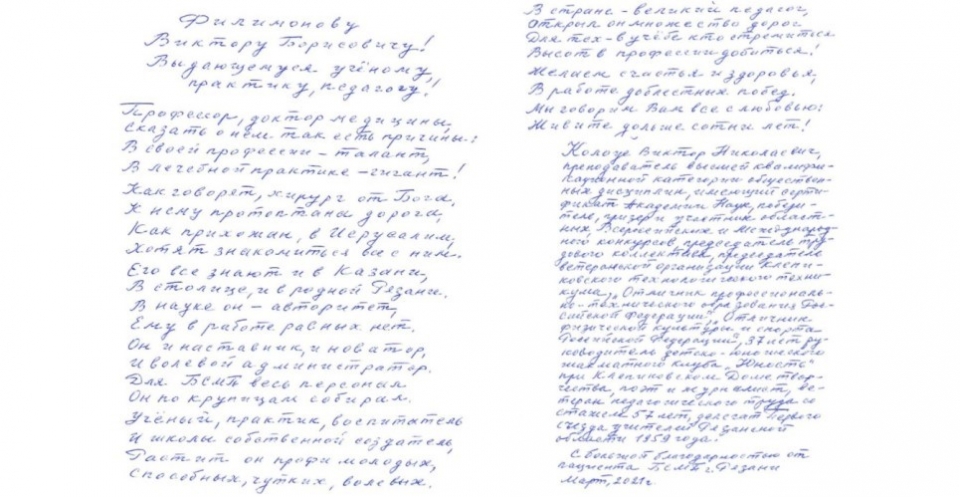 Филимонову
Виктору Борисовичу!
Выдающемуся учёному,
практику, педагогу!
Профессор, доктор медицины,
Сказать о нём так есть причины:
В своей профессии – талант,
В лечебной практике – гигант!
Как говорят, хирург от Бога,
К нему протоптана дорога,
Как прихожан, в Иерусалим,
Хотят знакомиться все с ним.
Его все знают и в Казани,
В столице, и в родной Рязани.
В науке он – авторитет,
Ему в работе равных нет.
Он и наставник, и новатор,
И волевой администратор.
Для БСМП весь персонал
Он по крупицам собирал.
Учёный, практик, воспитатель
И школы собственной создатель,
Растит он профи молодых,
Способных, чутких, волевых.
В стране – великий педагог,
Открыл он множество дорог
Для тех – в учёбе кто стремиться
Высот в профессии добиться!
Желаем счастья и здоровья,
В работе доблестных побед.
Мы говорим Вам все с любовью:
Живите дольше сотни лет!
Колоце Виктор Николаевич,
преподаватель высшей квалифи-
кационной категории обществен-
ных дисциплин, имеющий серти-
фикат Академии Наук, победи-
тель, призер и участник област-
ных, Всероссийских и Международ-
ного конкурсов, председатель тру-
дового коллектива, председатель
ветеранской организации Клепи-
ковского технологического техни-
кума, „Отличник профессиональ-
но-технического образования Рос-
сийской Федерации", „Отличник
физической культуры и спорта
Российской Федерации", 37 лет ру-
ководитель детско-юношеского
шахматного клуба „Юность"
при Клепиковском Доме творче-
чества, поэт и журналист, ве-
теран педагогического труда со
стажем 57 лет, делегат Первого
съезда учителей Рязанской
области 1959 года.
С большой благодарностью от
пациента БСМП г. Рязани
Март, 2021г